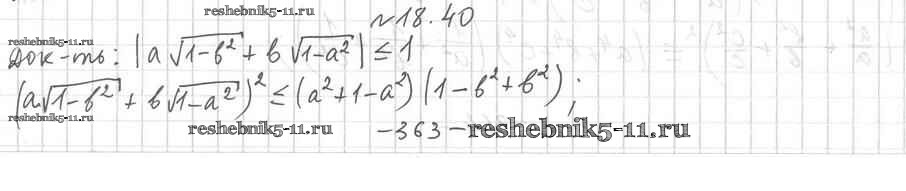 reshebnik5-11.ru
№18.40
reshebnik5-11.ru
Док-ть: |a√(1-b²) + b√(1-a²)| ≤ 1
(a√(1-b²) + b√(1-a²))² ≤ (a²+1-a²)(1-b²+b²);
reshebnik5-11.ru
-363-
reshebnik5-11.ru